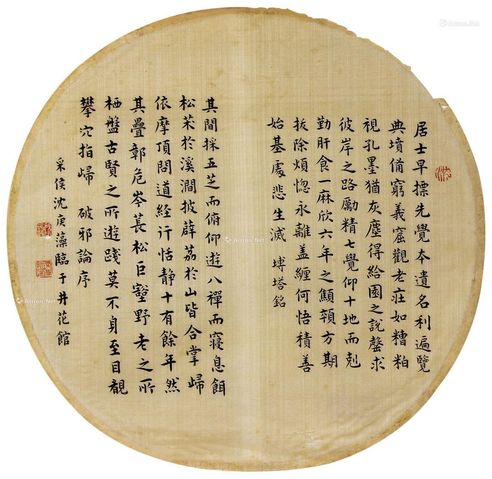 居士早摽先覺本遺名利遍覽
典墳備窮義窟觀老莊如糟粕
視孔墨猶灰塵得給園之說罄求
彼岸之路勵精七覺仰十地而剋
勤肝食一麻欣六年之顦顇方期
拔除煩惚永離蓋纏何悟積善
始基處悲生滅 塼塔銘
其間採五芝而俯仰遊八禪而寢息餌
松茱於溪澗披薜荔於山皆合掌歸
依摩頂問道經行恬靜十有餘年然
其疊郭危岑萇松巨壑野老之所
栖盤古賢之所遊踐莫不身至目覩
攀穴指歸 破邪論序
采侯沈庚藻臨于井花館